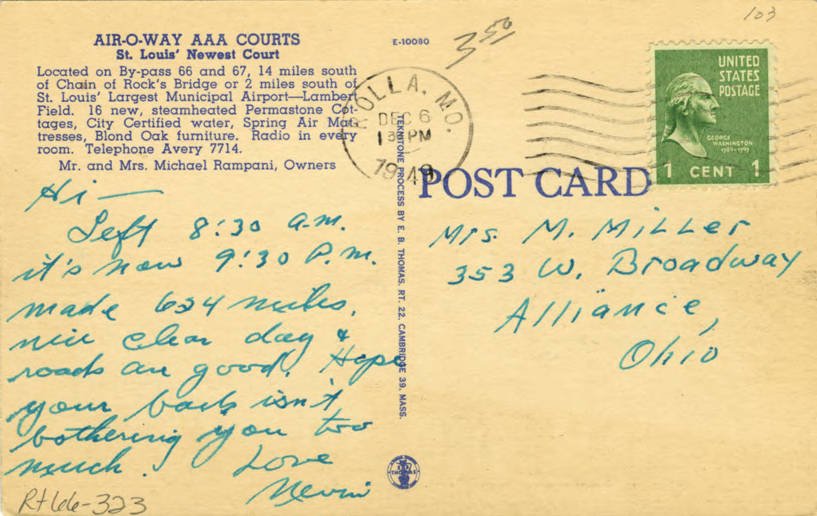 103
3 50
AIR-O-WAY AAA COURTS
St. Louis' Newest Court
Located on By-pass 66 and 67, 14 miles south
of Chain of Rock's Bridge or 2 miles south of
St. Louis' Largest Municipal Airport—Lambert
Field. 16 new, steamheated Permastone Cot-
tages, City Certified water, Spring Air Mat-
tresses, Blond Oak furniture. Radio in every
room. Telephone Avery 7714.
Mr. and Mrs. Michael Rampani, Owners
E-10080
ROLLA, MO.
DEC 6
1 PM
1949
UNITED
STATES
POSTAGE
GEORGE
WASHINGTON
1789-1797
1 CENT 1
POST CARD
Hi —
Left 8:30 a.m.
it's now 9:30 P.m.
made 624 miles.
nice clear day &
roads are good. Hope
your back isn't
bothering you too
much. Love
TEKNTONE PROCESS BY E. B. THOMAS, RT. 22, CAMBRIDGE 39, MASS.
Mrs. M. Miller
353 W. Broadway
Alliance,
Ohio
Rt 66-323